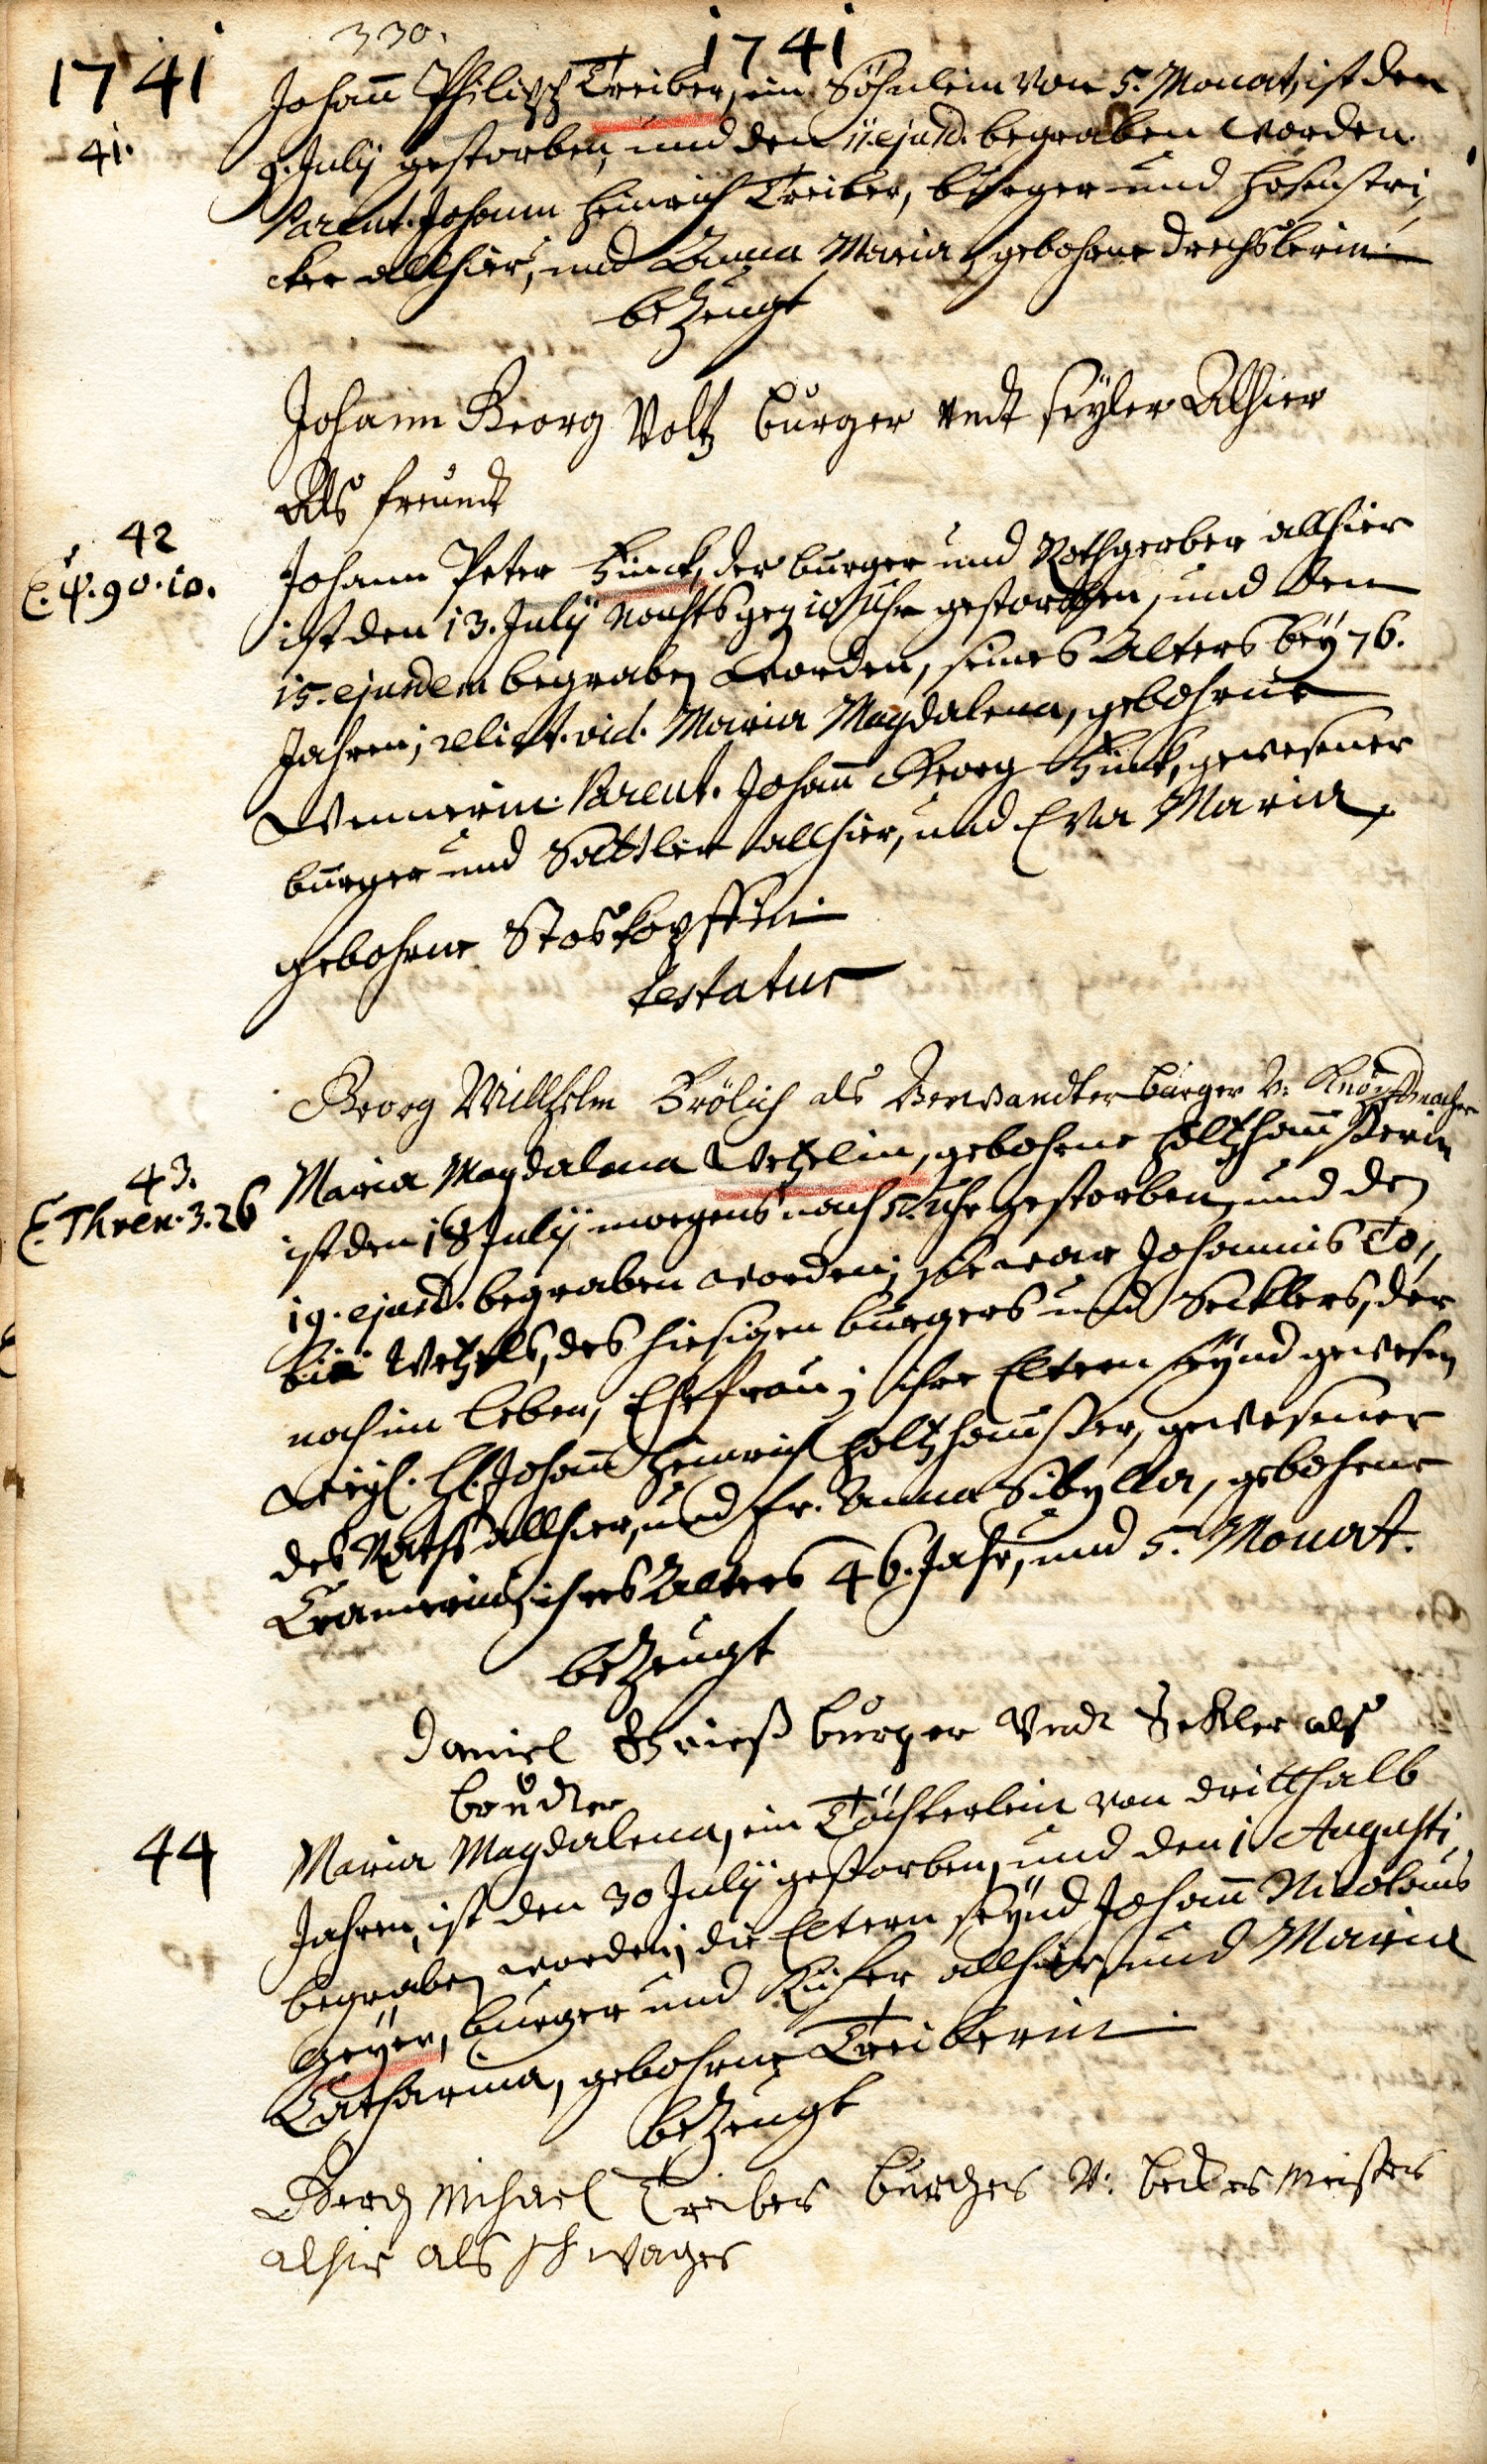 330.
1741
1741
41.
Johañ Philipp Treiber, ein Söhnlein von 5. Monat, ist den
9. July gestorben, und den 11. ejusd. begraben worden.
Parent. Johann Heinrich Treiber, burger und hosenstri,,
cker allhier, und Anna Maria, gebohrne Drechslerin.
bezeugt
Johann Georg Voltz burger undt seyler Alhier
Als freundt
42
E. ψ. 90. 10.
Johann Peter Zinck, der burger und Rothgerber allhier
ist den 13. July nachts geg 10 Uhr gestorben, und den
15. ejusdem begraben worden, seines Alters bey 76.
Jahren; relict. vid. Maria Magdalena, gebohrne
Parent. Johañ Georg Zinck, gewesener
burger und Sattler allhier, und Eva Maria,
gebohrne Stoskopffin.
testatur
Georg Willhelm Frölich als Verwandter burger V: Knöpffmacher
43.
E. Thren. 3. 26
Maria Magdalena Wetzelin, gebohrne Holtzhaußerin
ist den 18 July morgens nach 5. Uhr gestorben, und den
19. ejusd. begraben worden; sie war Johannis To,,
biä Wetzels, des hiesigen burgers und Secklers, der
noch im leben, Ehefrau; ihre Eltern seynd gewesen
weyl. H. Johañ Heinrich Holtzhaußer, gewesener
des Raths allhier, und Fr. Anna Sibylla, gebohrne
Cramerin, ihres Alters 46. Jahr, und 5. Monat.
bezeugt
Daniel Grieß burger Undt Sekler als
bruder
44
Maria Magdalena, ein Töchterlein von dritthalb
Jahren, ist den 30 July gestorben, und den 1. Augusti
begraben worden; die Eltern seynd Johañ Nicolaus
Geyer, burger und Kiefer allhier, und Maria
Catharina, gebohrne Treiberin.
bezeugt
Georg Michael Treiber burger V: becker Meister
alhir als schwager